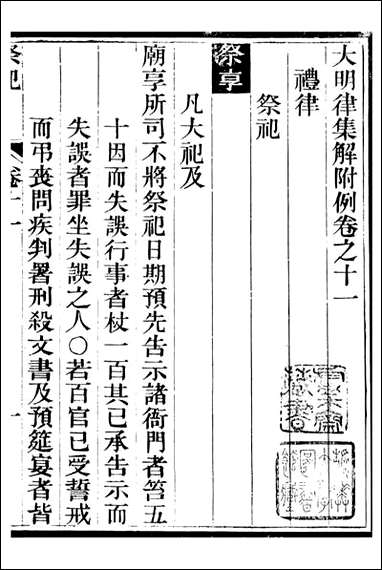 大明律集解附例卷之十一
禮律
祭祀
祭享
凡大祀及
廟享所司不將祭祀日期預先告示諸衙門者笞五
十因而失誤行事者杖一百其已承告示而
失誤者罪坐失誤之人○若百官已受誓戒
而弔喪問疾判署刑殺文書及預筵宴者皆
祭祀
卷十一
一